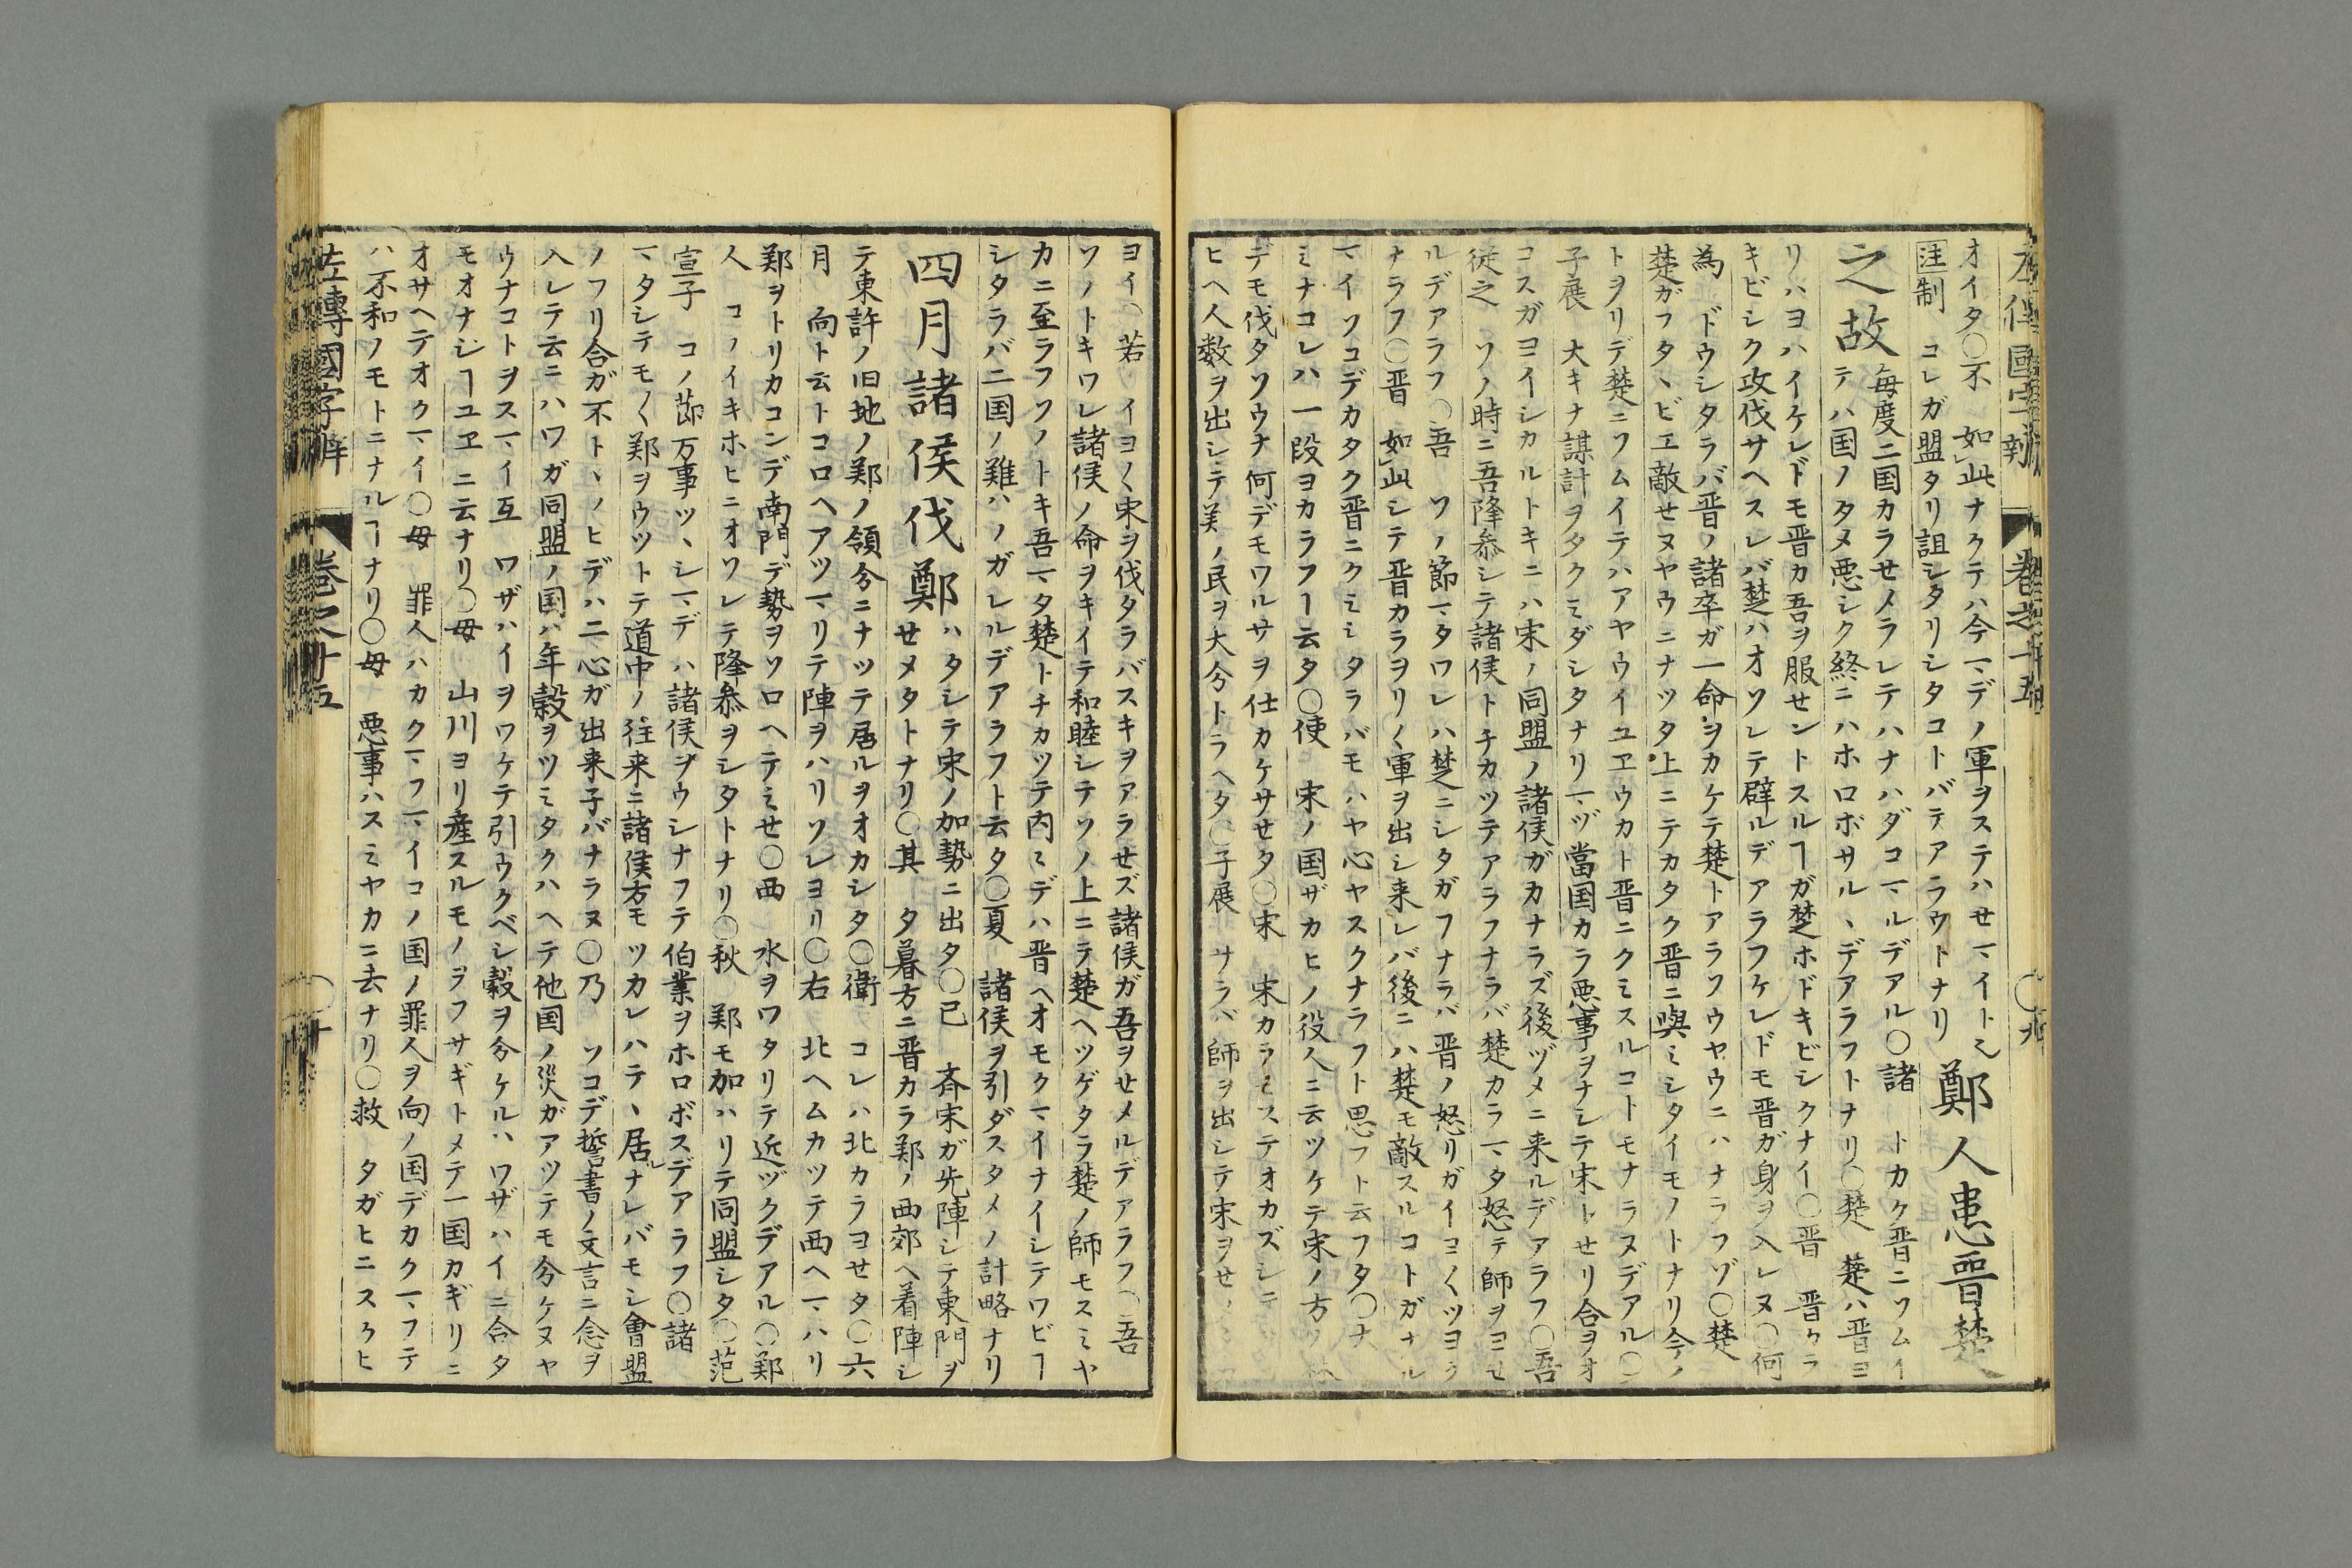 左傳國字辯 巻之十五 〇九
オイタ〇不 如此ナクテハ今マデノ軍ヲステハセマイト之 鄭人患晋楚
注制 コレガ盟タリ詛シタリシタコトバテアラウトナリ
之故 毎度二国カラせメラレテハナハダコマルデアル〇諸 トカク晋ニソムイ
テハ国ノタメ悪シク終ニハホロボサルヽデアラフトナリ〇楚 楚ハ晋ヨ
リハヨハイケレドモ晋カ吾ヲ服せントスルヿガ楚ホドキビシクナイ〇晋 晋ケラ
キビシク攻伐サヘスレバ楚ハオソレテ辟ルデアラフケレドモ晋ガ身ヲ入レヌ〇何
為 ドウシタラバ晋ノ諸卒ガ一命ヲカケテ楚トアラソウヤウニハナラフゾ〇楚
楚ガフタヽビエ敵せヌヤウニナツタ上ニテカタク晋ニ與ミシタイモノトナリ今ノ
トヲリデ楚ニソムイテハアヤウイユエウカト晋ニクミスルコトモナラヌデアル〇
子展 大キナ謀計ヲタクミダシタナリマヅ當国カラ悪事ヲナシテ宋トせリ合ヲオ
コスガヨイシカルトキニハ宋ノ同盟ノ諸侯ガカナラズ後ヅメニ来ルデアラフ〇吾
従之 ソノ時ニ吾降参シテ諸侯トチカツテアラフナラバ楚カラマタ怒テ師ヲヨせ
ルデアラフ〇吾 ソノ節マタワレハ楚ニシタガフナラバ晋ノ怒リガイヨ〱ツヨク
ナラフ〇晋 如此シテ晋カラヲリ〱軍ヲ出シ来レバ後ニハ楚モ敵スルコトガナル
マイソコデカタク晋ニクミシタラバモハヤ心ヤスクナラフト思フト云フタ〇大
ミナコレハ一段ヨカラフヿ云タ〇使 宋ノ国ザカヒノ役人ニ云ツケテ宋ノ方
デモ伐タソウナ何デモワルサヲ仕カケサせタ〇宋 宋カラミステオカズシテ
ヒヘ人数ヲ出シテ美ノ民ヲ大分トラヘタ〇子展 サラバ師ヲ出シテ宋ヲせ
ヨイ〇若 イヨ〱宋ヲ伐タラバスキヲアラせズ諸侯ガ吾ヲせメルデアラフ〇吾
ソノトキワレ諸侯ノ命ヲキイテ和睦シテソノ上ニラ楚ヘツゲタラ楚ノ師モスミヤ
カニ至ラフソノトキ吾マタ楚トチカツテ内ミデハ晋ヘオモクマイナイシテワビヿ
シタラバ二国ノ難ハノガレルデアラフト云タ〇夏 諸侯ヲ引ダスタメノ計略ナリ
四月諸侯伐鄭 ハタシテ宋ノ加勢ニ出タ〇已 斉宋ガ先陣シテ東門ヲ
せメタトナリ〇其 夕暮方ニ晋カラ鄭ノ西郊ヘ着陣シ
テ東許ノ旧地ノ鄭ノ領分ニナツテ居ルヲオカシタ〇衛 コレハ北カラヨせタ〇六
月 向ト云トコロヘアツマリテ陣ヲハリソレヨリ〇右 北ヘムカツテ西ヘマハリ
鄭ヲトリカコンデ南門デ勢ヲソロヘテミせ〇西 水ヲワタリテ近ヅクデアル〇鄭
人 コノイキホヒニオソレテ降参ヲシタトナリ〇秋 鄭モ加ハリテ同盟シタ〇范
宣子 コノ節万事ツヽシマデハ諸侯ヲウシナフテ伯業ヲホロボスデアラフ〇諸
マタシテモ〱鄭ヲウツトテ道中ノ往来ニ諸侯方モツカレハテヽ居ルナレバモシ會盟
ノフリ合ガ不トヽノヒデハ二心ガ出来子バナラヌ〇乃 ソコデ誓書ノ文言ニ念ヲ
入レテ云ニハワガ同盟ノ国ハ年穀ヲツミタクハヘテ他国ノ災ガアツテモ分ケヌヤ
ウナコトヲスマイ互 ワザハイヲワケテ引ウクベシ穀ヲ分ケルハワザハイニ合タ
モオナジヿユヱニ云ナリ〇毋 山川ヨリ産スルモノヲフサギトメテ一国カギリニ
オサヘテオクマイ〇毋 罪人ハカクマフマイコノ国ノ罪人ヲ向ノ国デカクマフテ
ハ不和ノモトニナルヿナリ〇毋 悪事ハスミヤカニ去ナリ〇救 タガヒニスクヒ
左傳國字辯 巻之十五 〇十